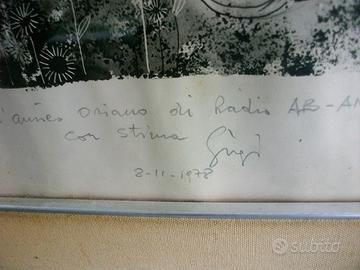 amico Oriano di Radio AB-AN
con stima Gigi
8-11-1978
subito